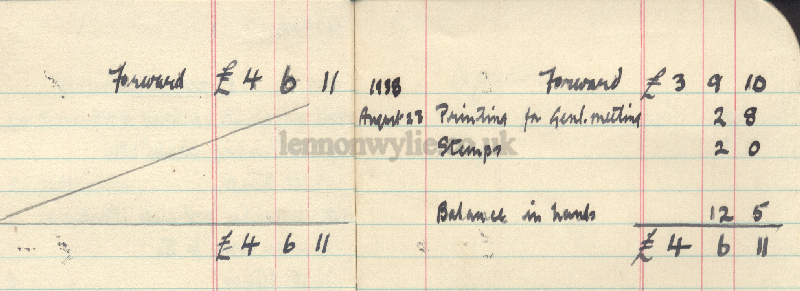 Forward £ 4 6 11
£ 4 6 11
1938 Forward £ 3 9 10
August 23 Printing for Genl. meeting 2 8
Stamps 2 0
lennonwylie.co.uk
Balance in hands 12 5
£ 4 6 11